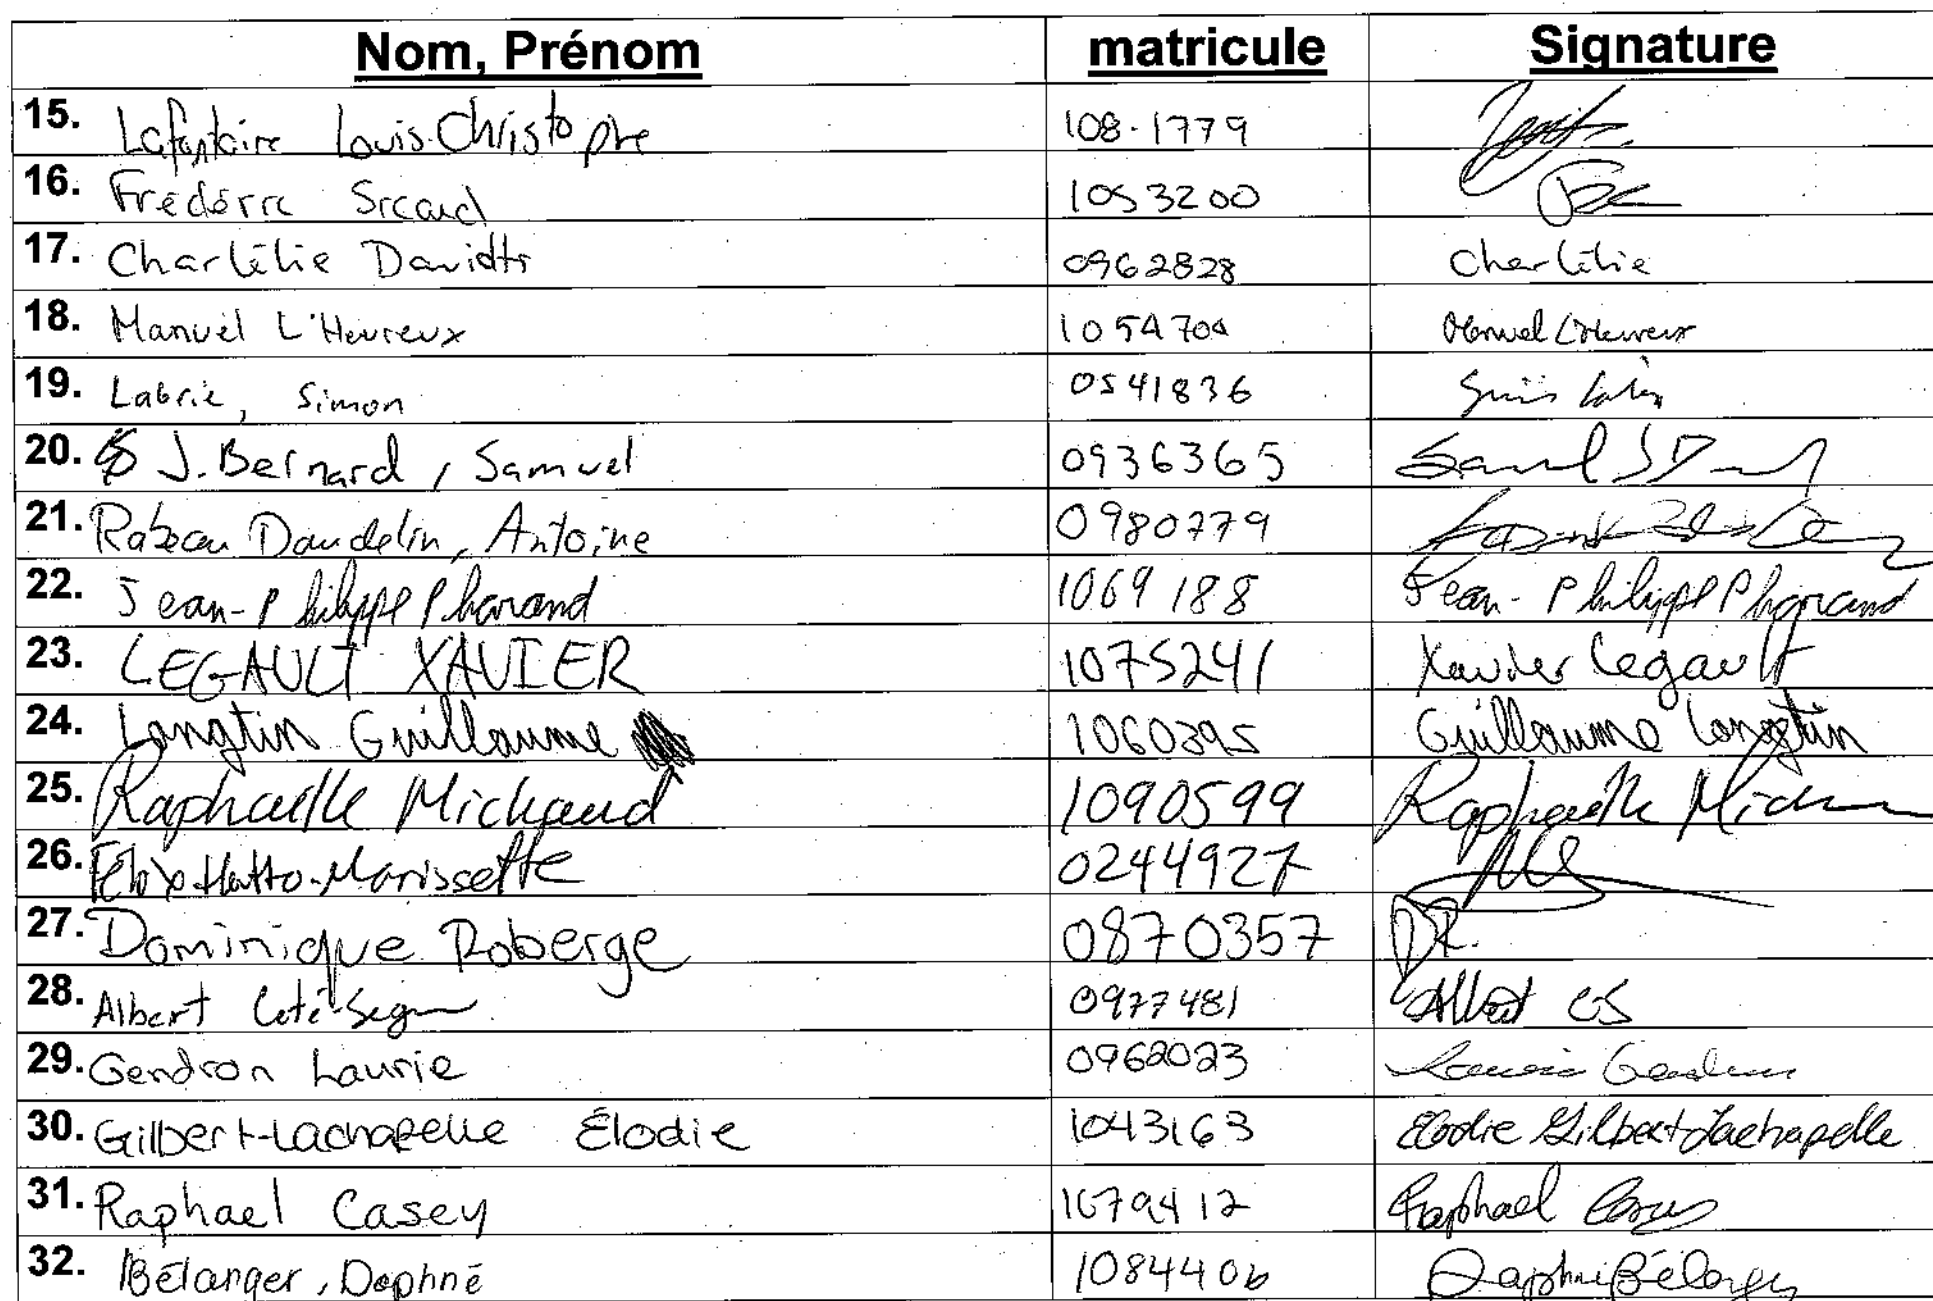 Nom, Prénom matricule Signature
15. Lafontaine Louis-Christophe 108-1779
16. Frédéric Sicard 1053200
17. Charlélie Davidts 0962828 Charlélie
18. Manuel L'Heureux 1054704 Manuel L'Heureux
19. Labrie, Simon 0541836 Simon Labrie
20. J. Bernard, Samuel 0936365 Samuel
21. Rabeau Daudelin, Antoine 0980779
22. Jean-Philippe Pharand 1069188 Jean-Philippe Pharand
23. LEGAULT XAVIER 1075241 Xavier Legault
24. Longtin Guillaume 1060395 Guillaume Longtin
25. Raphaelle Michaud 1090599 Raphaelle
26. Félix Hatto-Morissette 0244927
27. Dominique Roberge 0870357 D.R.
28. Albert Coté-Segu 0977481 Albert CS
29. Gendron Laurie 0962023 Laurie Gendron
30. Gilbert-Lachapelle Élodie 1043163 Élodie Gilbert-Lachapelle
31. Raphael Casey 1079412 Raphael Casey
32. Bélanger, Daphné 1084406 Daphné Bélanger